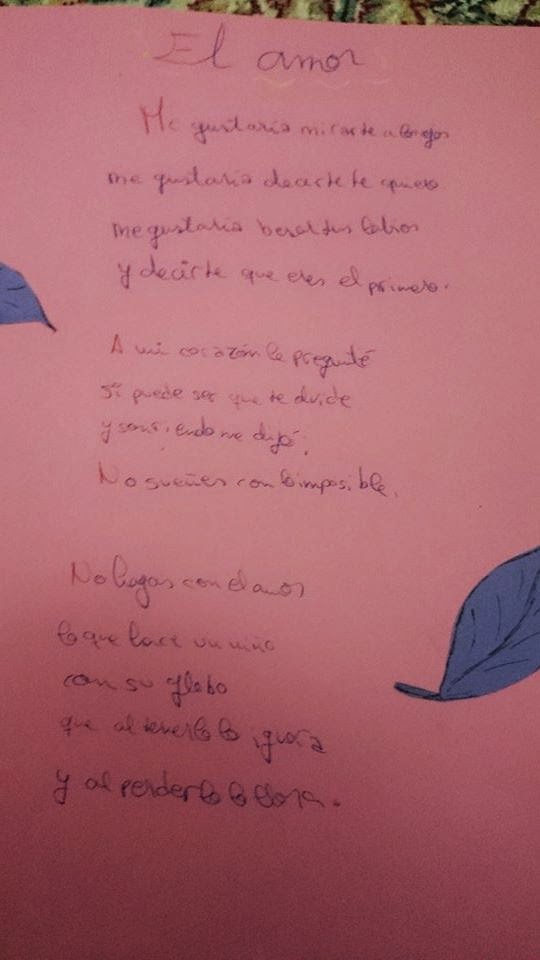 El amor
Me gustaria mirarte a los ojos
me gustaria decirte te quiero
me gustaria besar tus labios
y decirte que eres el primero.
A mi corazón le pregunté
si puede ser que te olvide
y sonriendo me dijo,
No sueñes con lo imposible.
No hagas con el amor
lo que hace un niño
con su globo
que al tenerlo lo ignora
y al perderlo lo llora.